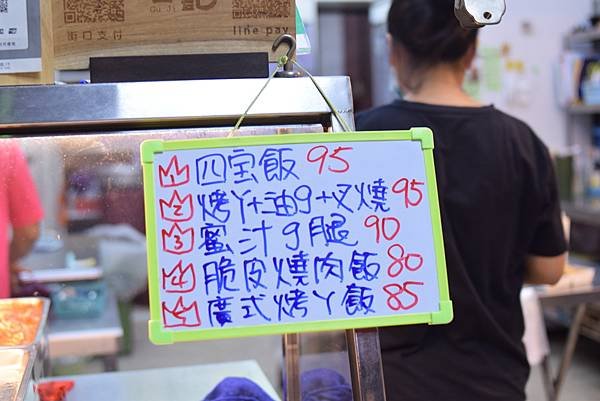 街口支付
line pay
1 四宝飯 95
2 烤丫+油g+叉燒 95
3 蜜汁g腿 90
4 脆皮燒肉飯 80
5 廣式烤丫飯 85